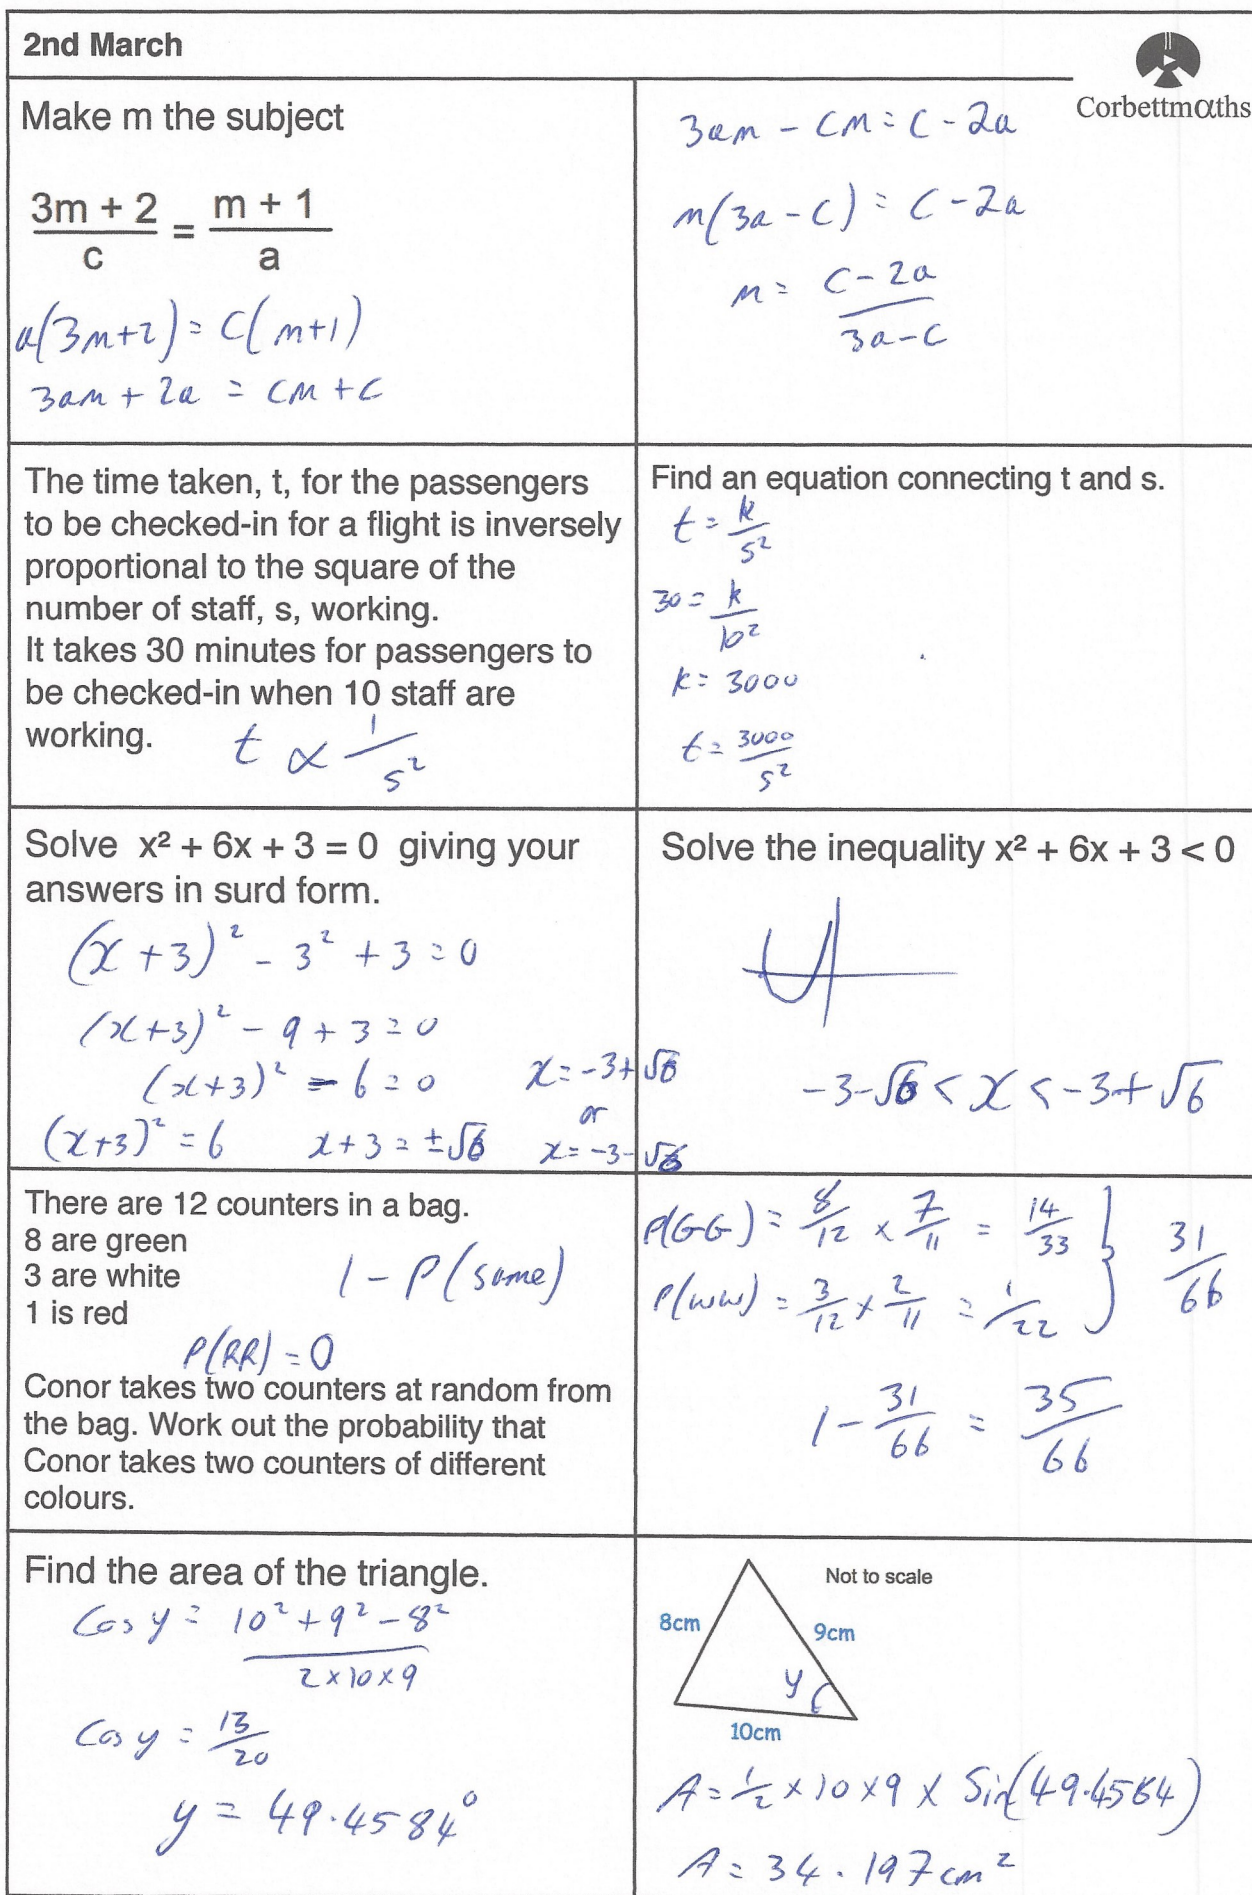 2nd March
Corbettmαths
Make m the subject
3m + 2 / c = m + 1 / a
a(3m+2) = c(m+1)
3am + 2a = cm + c
3am - cm = c - 2a
m(3a - c) = c - 2a
m = c - 2a / 3a - c
The time taken, t, for the passengers
to be checked-in for a flight is inversely
proportional to the square of the
number of staff, s, working.
It takes 30 minutes for passengers to
be checked-in when 10 staff are
working.
t ∝ 1/s²
Find an equation connecting t and s.
t = k/s²
30 = k/10²
k = 3000
t = 3000/s²
Solve x² + 6x + 3 = 0 giving your
answers in surd form.
(x + 3)² - 3² + 3 = 0
(x+3)² - 9 + 3 = 0
(x+3)² - 6 = 0
(x+3)² = 6
x + 3 = ±√6
x = -3+√6
or
x = -3-√6
Solve the inequality x² + 6x + 3 < 0
-3-√6 < x < -3+√6
There are 12 counters in a bag.
8 are green
3 are white
1 is red
1 - P(same)
P(RR) = 0
Conor takes two counters at random from
the bag. Work out the probability that
Conor takes two counters of different
colours.
P(GG) = 8/12 × 7/11 = 14/33
P(WW) = 3/12 × 2/11 = 1/22
31/66
1 - 31/66 = 35/66
Find the area of the triangle.
Cos y = 10² + 9² - 8² / 2×10×9
Cos y = 13/20
y = 49.4584°
Not to scale
8cm
9cm
y
10cm
A = 1/2 × 10 × 9 × Sin(49.4584)
A = 34.197 cm²